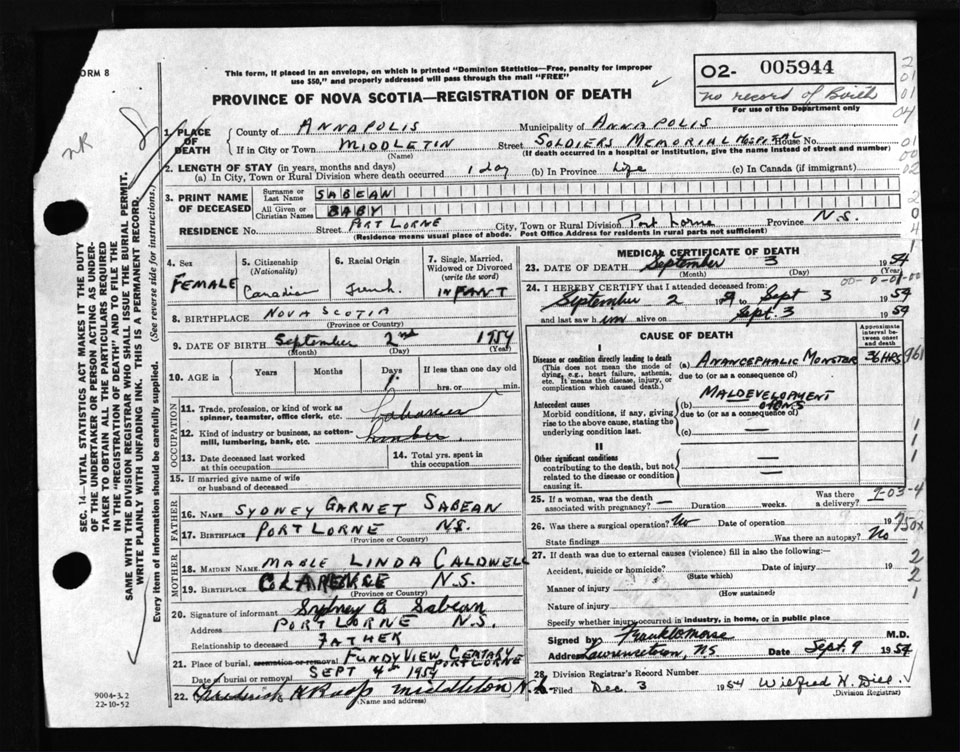 ORM 8
This form, if placed in an envelope, on which is printed "Dominion Statistics—Free, penalty for improper
use $50," and properly addressed will pass through the mail "FREE"
PROVINCE OF NOVA SCOTIA—REGISTRATION OF DEATH
02- 005944
no record of Birth
For use of the Department only
NR
1. PLACE OF DEATH
County of ANNAPOLIS Municipality of ANNAPOLIS
If in City or Town MIDDLETIN Street SOLDIERS MEMORIAL HOSPITAL House No.
(Name) (If death occurred in a hospital or institution, give the name instead of street and number)
2. LENGTH OF STAY (in years, months and days)
(a) In City, Town or Rural Division where death occurred 1 day (b) In Province Life (c) In Canada (if immigrant)
3. PRINT NAME OF DECEASED
Surname or Last Name SABEAN
All Given or Christian Names BABY
RESIDENCE No. Street PORT LORNE City, Town or Rural Division Port Lorne Province N.S.
(Residence means usual place of abode. Post Office Address for residents in rural parts not sufficient)
4. Sex FEMALE
5. Citizenship (Nationality) Canadian
6. Racial Origin French.
7. Single, Married, Widowed or Divorced (write the word) INFANT
8. BIRTHPLACE NOVA SCOTIA
(Province or Country)
9. DATE OF BIRTH September 2nd 1954
(Month) (Day) (Year)
10. AGE in Years Months Days 1. If less than one day old hrs. or min.
OCCUPATION
11. Trade, profession, or kind of work as spinner, teamster, office clerk, etc.
12. Kind of industry or business, as cotton-mill, lumbering, bank, etc. Lumber.
13. Date deceased last worked at this occupation
14. Total yrs. spent in this occupation
15. If married give name of wife or husband of deceased
FATHER
16. Name SYDNEY GARNET SABEAN
17. Birthplace PORT LORNE N.S.
(Province or Country)
MOTHER
18. Maiden Name MABLE LINDA CALDWELL
19. Birthplace CLARENCE N.S.
(Province or Country)
20. Signature of informant Sydney G Sabean
Address PORT LORNE N.S.
Relationship to deceased FATHER
21. Place of burial, cremation or removal FUNDY VIEW CEATARY PORT LORNE
Date of burial or removal SEPT 4th 1954
22. Frederick Middleton N.S.
MEDICAL CERTIFICATE OF DEATH
23. DATE OF DEATH September 3 1954
(Month) (Day) (Year)
24. I HEREBY CERTIFY that I attended deceased from:
September 2 19 to Sept 3 1954
and last saw him alive on Sept. 3 1954
CAUSE OF DEATH
Approximate interval between onset and death
I
Disease or condition directly leading to death
(This does not mean the mode of dying, e.g., heart failure, asthenia, etc. It means the disease, injury, or complication which caused death.)
(a) ANANCEPHALIC MONSTER 36 HRS 961
due to (or as a consequence of)
Antecedent causes
Morbid conditions, if any, giving rise to the above cause, stating the underlying condition last.
MALDEVELOPMENT
(b)
due to (or as a consequence of)
(c) —
II
Other significant conditions
contributing to the death, but not related to the disease or condition causing it.
25. If a woman, was the death associated with pregnancy? — Duration weeks. Was there a delivery?
26. Was there a surgical operation? No Date of operation 19
State findings Was there an autopsy? No
27. If death was due to external causes (violence) fill in also the following:—
Accident, suicide or homicide? Date of injury 19
(State which)
Manner of injury
(How sustained)
Nature of injury
Specify whether injury occurred in industry, in home, or in public place
Signed by Frank Morse M.D.
Address Lawrencetown, N.S Date Sept. 9 1954
28. Division Registrar's Record Number
29. Filed Dec. 3 1954 Wilfred H. Dill
(Division Registrar)
SEC. 14—VITAL STATISTICS ACT MAKES IT THE DUTY
OF THE UNDERTAKER OR PERSON ACTING AS UNDER-
TAKER TO OBTAIN ALL THE PARTICULARS REQUIRED
IN THE "REGISTRATION OF DEATH" AND TO FILE THE
SAME WITH THE DIVISION REGISTRAR WHO SHALL ISSUE THE BURIAL PERMIT.
WRITE PLAINLY WITH UNFADING INK. THIS IS A PERMANENT RECORD.
Every item of information should be carefully supplied. (See reverse side for instructions.)
9004-3.2
22-10-52